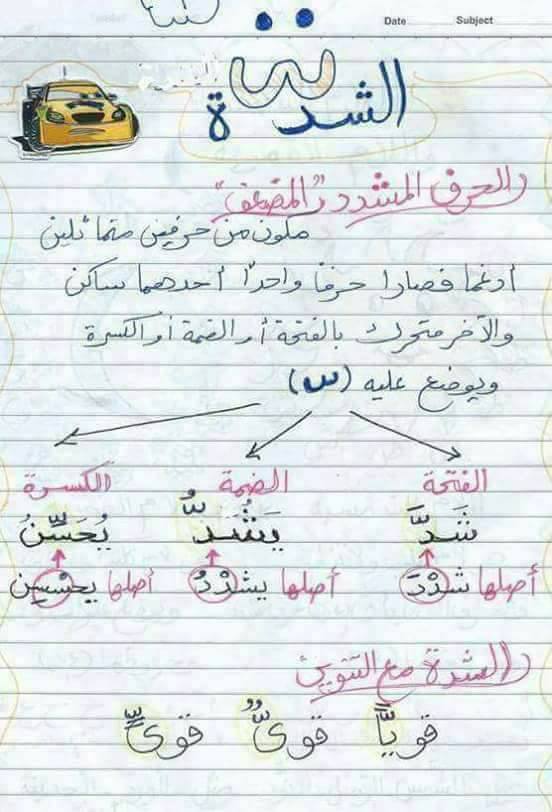 Date Subject
الشدة
الحرف المشدد "المضعف"
ملون من حرفين متماثلين
أدغما فصارا حرفًا واحدًا أحدهما ساكن
والآخر متحرك بالفتحة أو الضمة أو الكسرة
ويوضع عليه (س)
الفتحة الضمة الكسرة
شَدَّ يَشُدُّ يُحَسِّنُ
أصلها شدْدَ أصلها يشدْدُ أصلها يحسْسِن
الشدة مع التنوين
قويًّا قويٌّ قويٍّ